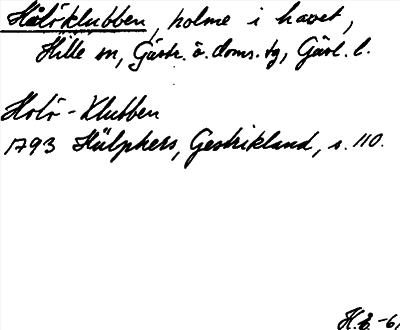 Hålöklubben, holme i havet,
Hille sn, Gästr. ö. doms. tg, Gävl. l.
Holö-Klubben
1793 Hülphers, Gestrikland, s. 110.
H.E. -6